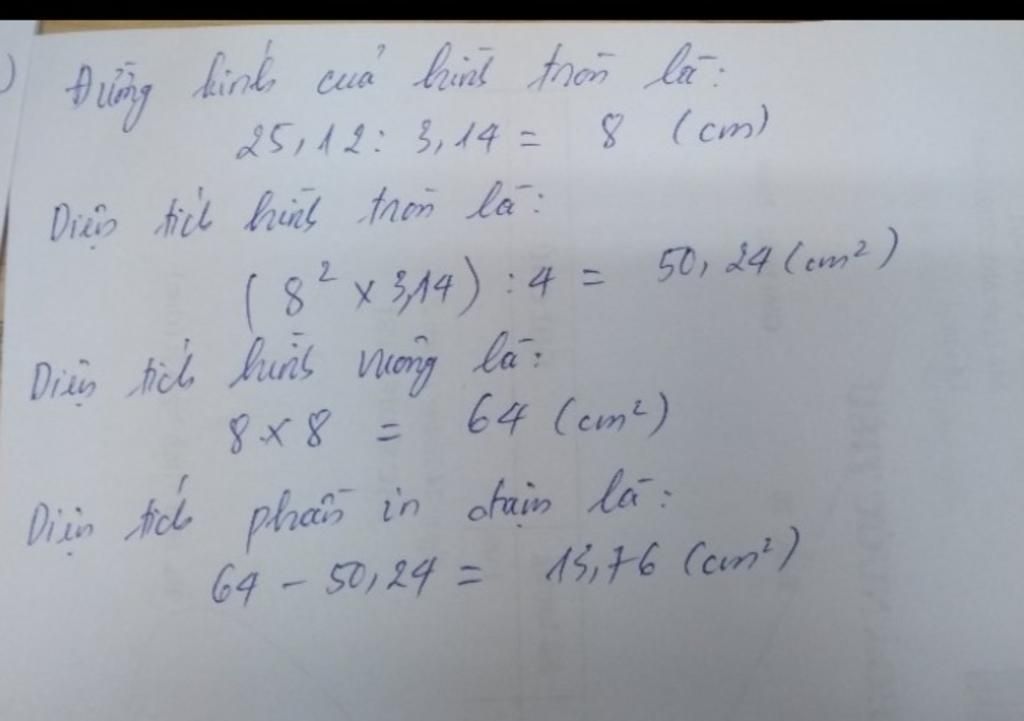 ) Đường kính của hình tròn là:
25,12 : 3,14 = 8 (cm)
Diện tích hình tròn là:
(8² x 3,14) : 4 = 50,24 (cm²)
Diện tích hình vuông là:
8 x 8 = 64 (cm²)
Diện tích phần in đậm là:
64 - 50,24 = 13,76 (cm²)